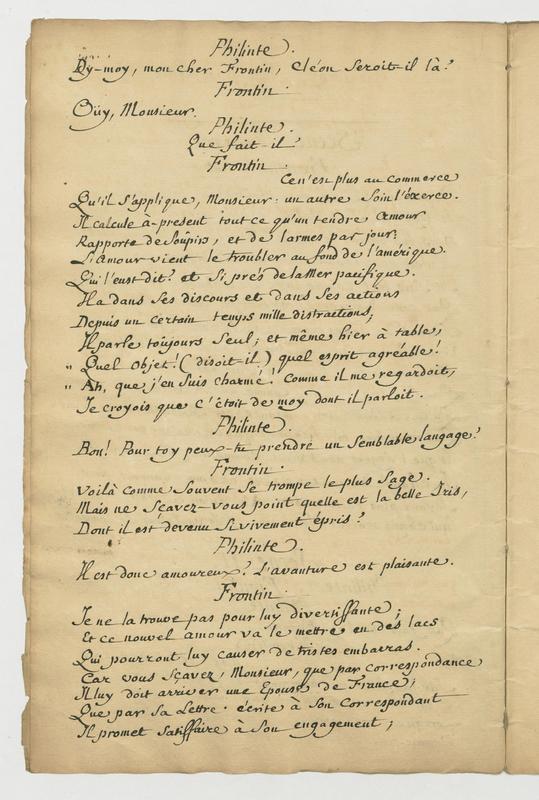 Philinte.
Dy-moy, mon cher Frontin, Cléon Seroit-il là?
Frontin.
Oüy, Monsieur.
Philinte.
Que fait-il
Frontin.
Ce n'est plus au commerce
Qu'il S'applique, Monsieur: un autre Soin l'éxerce.
Il calcule à-present tout ce qu'un tendre Amour
Rapporte de Soupirs, et de larmes par jour;
L'Amour vient le troubler au fond de l'amérique.
Qui l'eust dit? et Si prés de la Mer pacifique.
Il a dans Ses discours et dans Ses actions
Depuis un certain temps mille distractions,
Il parle toujours Seul; et même hier à table,
" Quel Objet! (disoit-il) quel esprit agréable!
" Ah, que j'en Suis charmé! Comme il me regardoit,
Je croyois que c'étoit de moy dont il parloit.
Philinte.
Bon! Pour toy peux-tu prendre un Semblable langage?
Frontin.
Voilà comme Souvent Se trompe le plus Sage.
Mais ne Sçavez-vous point quelle est la belle Iris,
Dont il est devenu Si vivement épris?
Philinte.
Il est donc amoureux? L'avanture est plaisante.
Frontin.
Je ne la trouve pas pour luy divertissante;
Et ce nouvel amour va le mettre en des lacs
Qui pourront luy causer de tristes embarras.
Car vous Sçavez, Monsieur, que par Correspondance
Il luy doit arriver une Epouse de France;
Que par Sa Lettre écrite à Son Correspondant
Il promet Satisfaire à Son engagement;